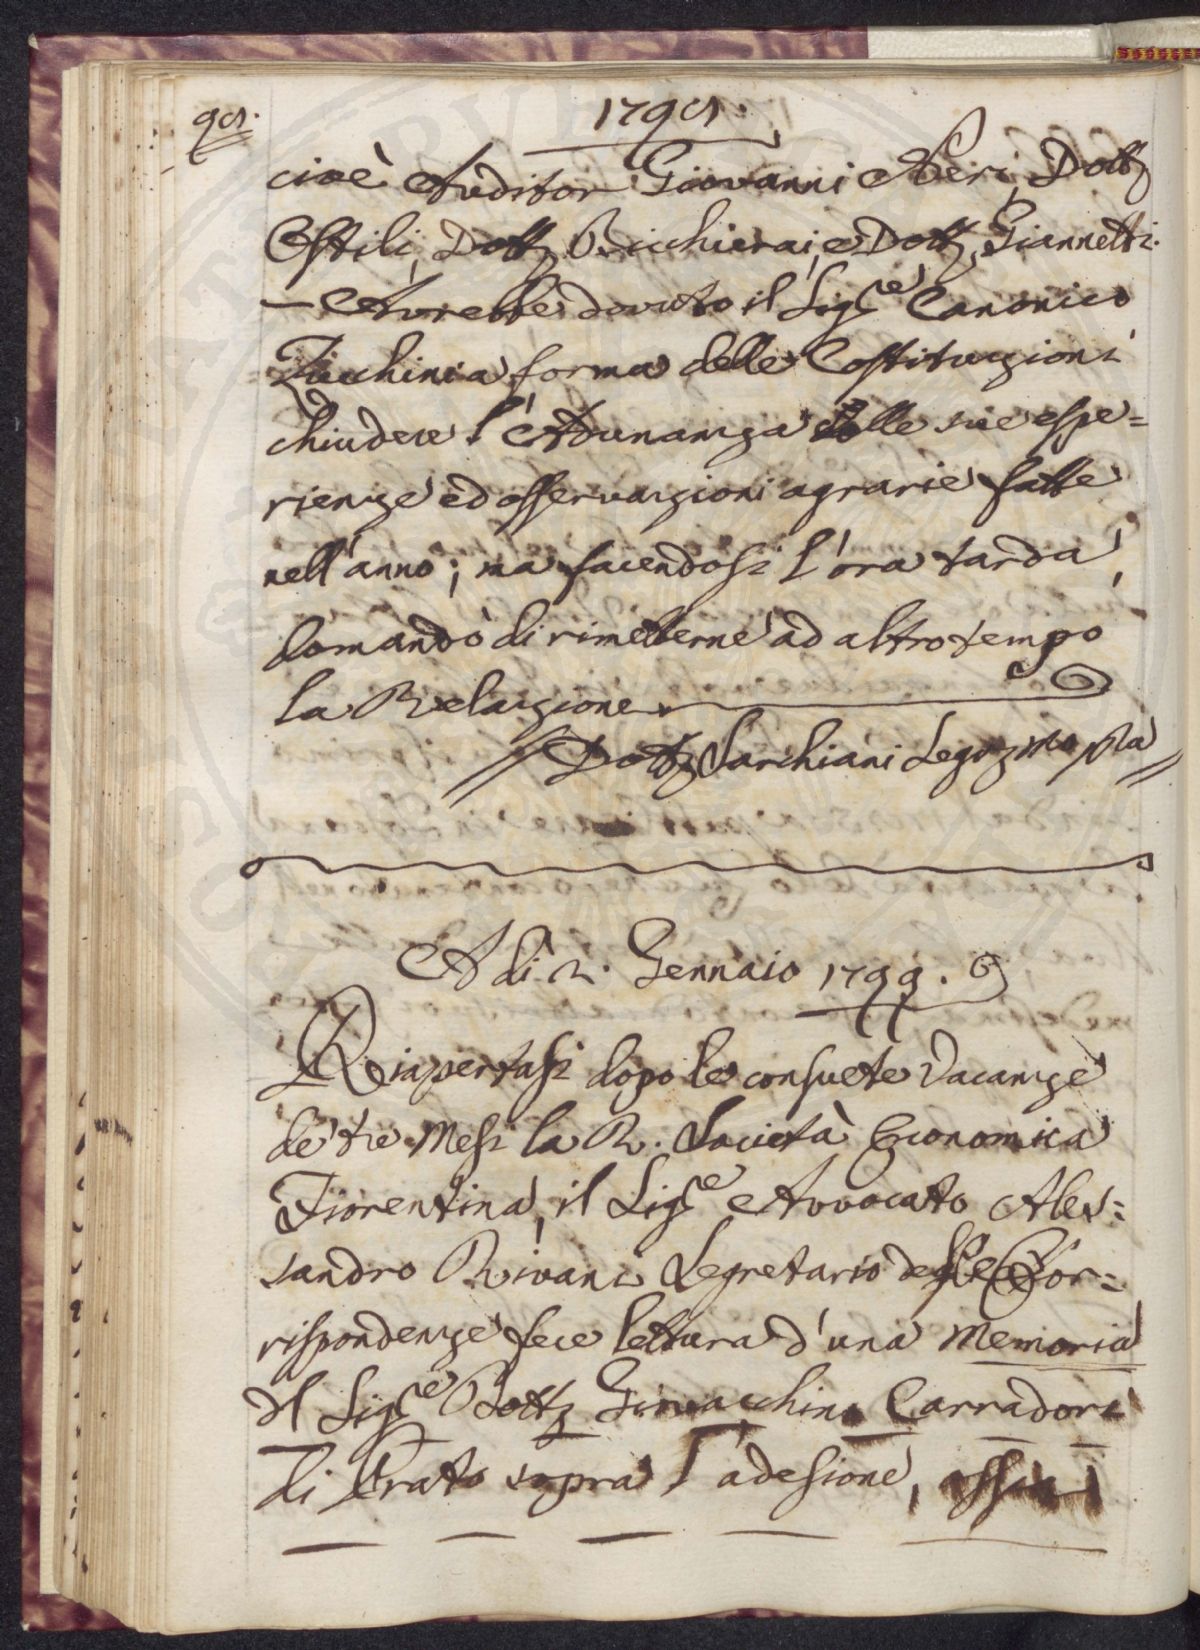 1799.
cioè Auditor Giovanni Neri, Dott.
Ostili, Dott. Bicchierai, e Dott. Giannetti.
— Avrebbe dovuto il Sig.re Canonico
Zucchini a forma delle Costituzioni
chiudere l'Adunanza colle sue espe=
rienze ed osservazioni agrarie fatte
nell'anno; ma facendosi l'ora tarda,
domandò di rimetterne ad altro tempo
la Relazione
// Dott. Sarchiani Seg.
A dì 2. Gennaio 1799.
Riapertasi dopo le consuete Vacanze
de' tre Mesi la R. Società Economica
Fiorentina, il Sig.re Avvocato Ales=
sandro Rivani Segretario delle Cor=
rispondenze fece lettura d'una Memoria
del Sig.re Dott. Giovacchino Carradori
di Prato sopra l'adesione, ossia